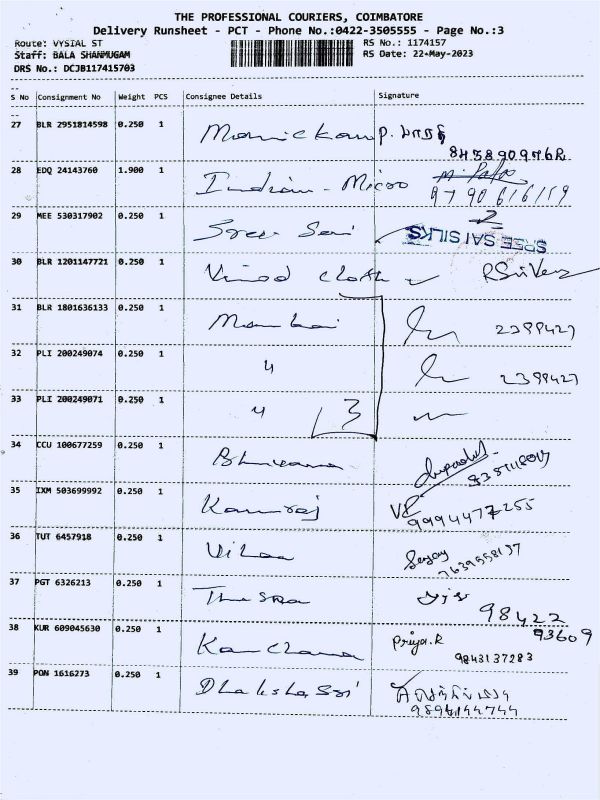 THE PROFESSIONAL COURIERS, COIMBATORE
Delivery Runsheet - PCT - Phone No.:0422-3505555 - Page No.:3
Route: VYSIAL ST RS No.: 1174157
Staff: BALA SHANMUGAM RS Date: 22-May-2023
DRS No.: DCJB117415703
S No Consignment No Weight PCS Consignee Details Signature
27 BLR 2951814598 0.250 1 Manickam P.
28 EDQ 24143760 1.900 1 Indian - Micro
9790616159
29 MEE 530317902 0.250 1 Sree Sai SREE SAI SILKS
30 BLR 1201147721 0.250 1 Vinod cloth
31 BLR 1801636133 0.250 1 Mambai 2399427
32 PLI 200249074 0.250 1 " 2399427
33 PLI 200249071 0.250 1 " 3
34 CCU 100677259 0.250 1 Bhuvana
35 IXM 503699992 0.250 1 Kamraj
9994477255
36 TUT 6457918 0.250 1
37 PGT 6326213 0.250 1
98422
93609
38 KUR 609045630 0.250 1 Kanchana Priya.R
9843137283
39 PON 1616273 0.250 1 Dhaksha Sri